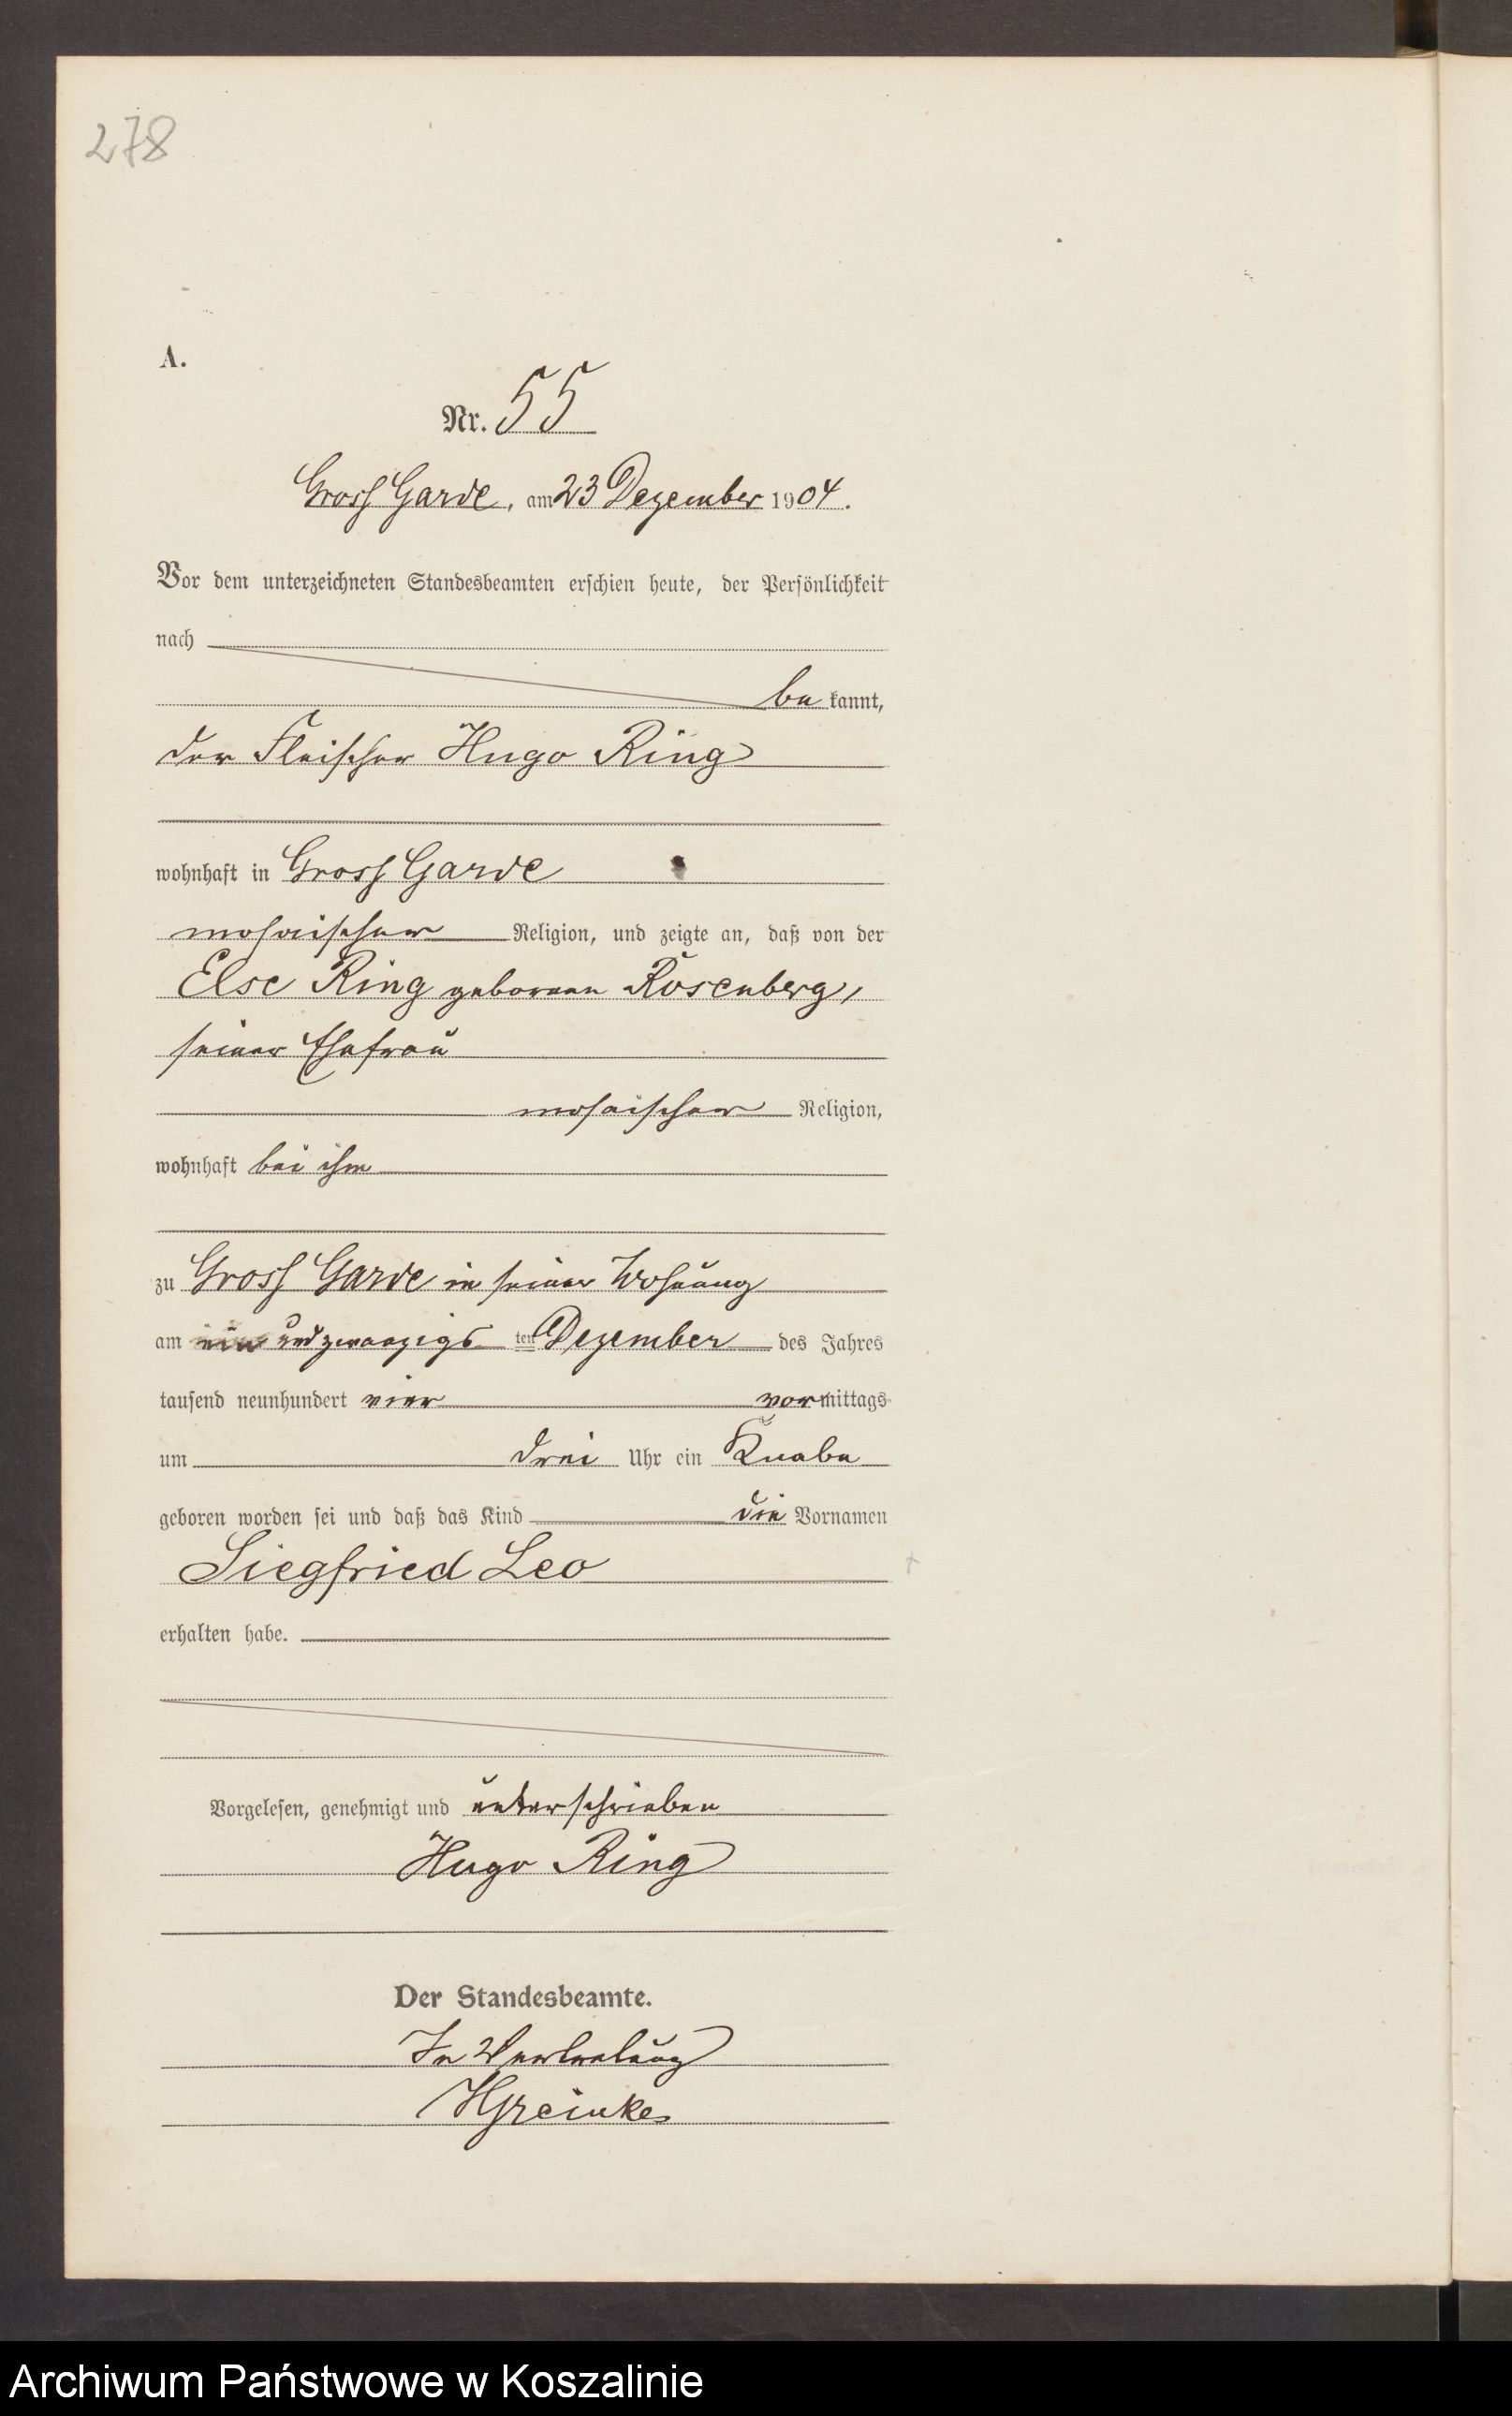 278
A.
Nr. 55
Gross Garde, am 23 Dezember 1904.
Vor dem unterzeichneten Standesbeamten erschien heute, der Persönlichkeit
nach
be kannt,
der Fleischer Hugo Ring
wohnhaft in Gross Garde
mosaischer Religion, und zeigte an, daß von der
Else Ring geborenen Rosenberg,
seiner Ehefrau
mosaischer Religion,
wohnhaft bei ihm
zu Gross Garde in seiner Wohnung
am ein und zwanzigs ten Dezember des Jahres
tausend neunhundert vier vormittags
um drei Uhr ein Knabe
geboren worden sei und daß das Kind die Vornamen
Siegfried Leo
erhalten habe.
Vorgelesen, genehmigt und unterschrieben
Hugo Ring
Der Standesbeamte.
In Vertretung
HGreinke
Archiwum Państwowe w Koszalinie